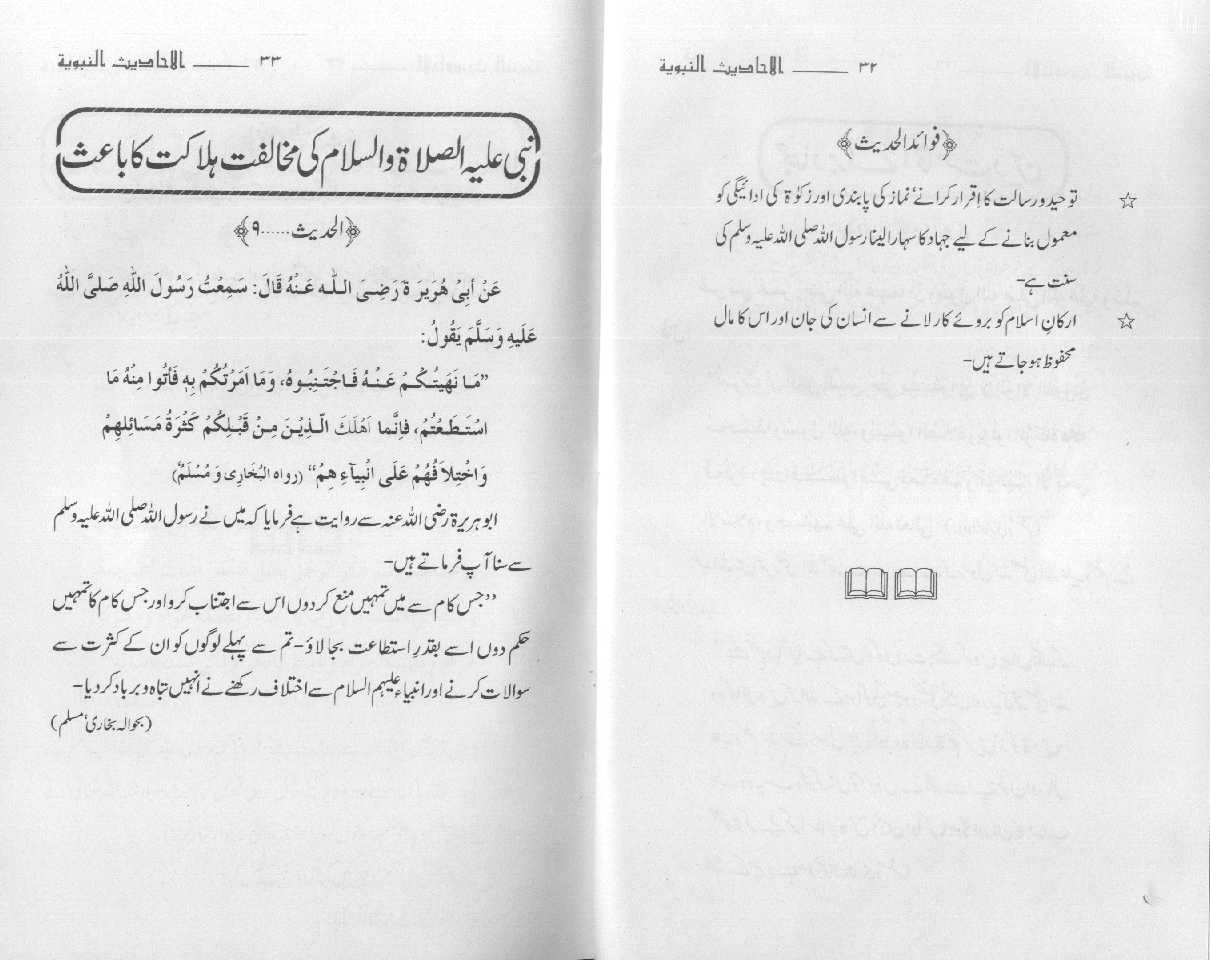 ۳۲ ــــــ الاحادیث النبویة
﴿فوائد الحدیث﴾
☆ توحید ورسالت کا اقرار کرانے‘ نماز کی پابندی اور زکوٰۃ کی ادائیگی کو
معمول بنانے کے لیے جہاد کا سہارا لینا رسول اللہ صلی اللہ علیہ وسلم کی
سنت ہے۔
☆ ارکانِ اسلام کو بروئے کار لانے سے انسان کی جان اور اس کا مال
محفوظ ہو جاتے ہیں۔
۳۳ ــــــ الاحادیث النبویة
نبی علیہ الصلاۃ والسلام کی مخالفت ہلاکت کا باعث
﴿الحدیث.....۹﴾
عَنْ أَبِیْ هُرَیرَ ةَ رَضِیَ اللّٰه عَنْهُ قَالَ: سَمِعْتُ رَسُولَ اللّٰهِ صَلَّی اللّٰهُ
عَلَیهِ وَسَلَّمَ یَقُولُ:
”مَا نَهَیتُکُمْ عَنْهُ فَاجْتَنِبُوهُ، وَمَا اَمَرْتُکُمْ بِهٖ فَأتُوا مِنْهُ مَا
اسْتَطَعْتُمْ، فَإنَّما اَهْلَكَ الَّذِیْنَ مِنْ قَبْلِکُمْ کَثْرَةُ مَسَائِلِهِمْ
وَاخْتِلاَ فُهُمْ عَلَی انْبِیآءِ هِمُ“ (رواه البُخَارِی وَمُسْلَمٌ)
ابو ہریرۃ رضی اللہ عنہ سے روایت ہے فرمایا کہ میں نے رسول اللہ صلی اللہ علیہ وسلم
سے سنا آپ فرماتے ہیں۔
”جس کام سے میں تمہیں منع کر دوں اس سے اجتناب کرو اور جس کام کا تمہیں
حکم دوں اسے بقدرِ استطاعت بجا لاؤ۔ تم سے پہلے لوگوں کو ان کے کثرت سے
سوالات کرنے اور انبیاء علیہم السلام سے اختلاف رکھنے نے انہیں تباہ و برباد کر دیا۔
(بحوالہ بخاری‘ مسلم)